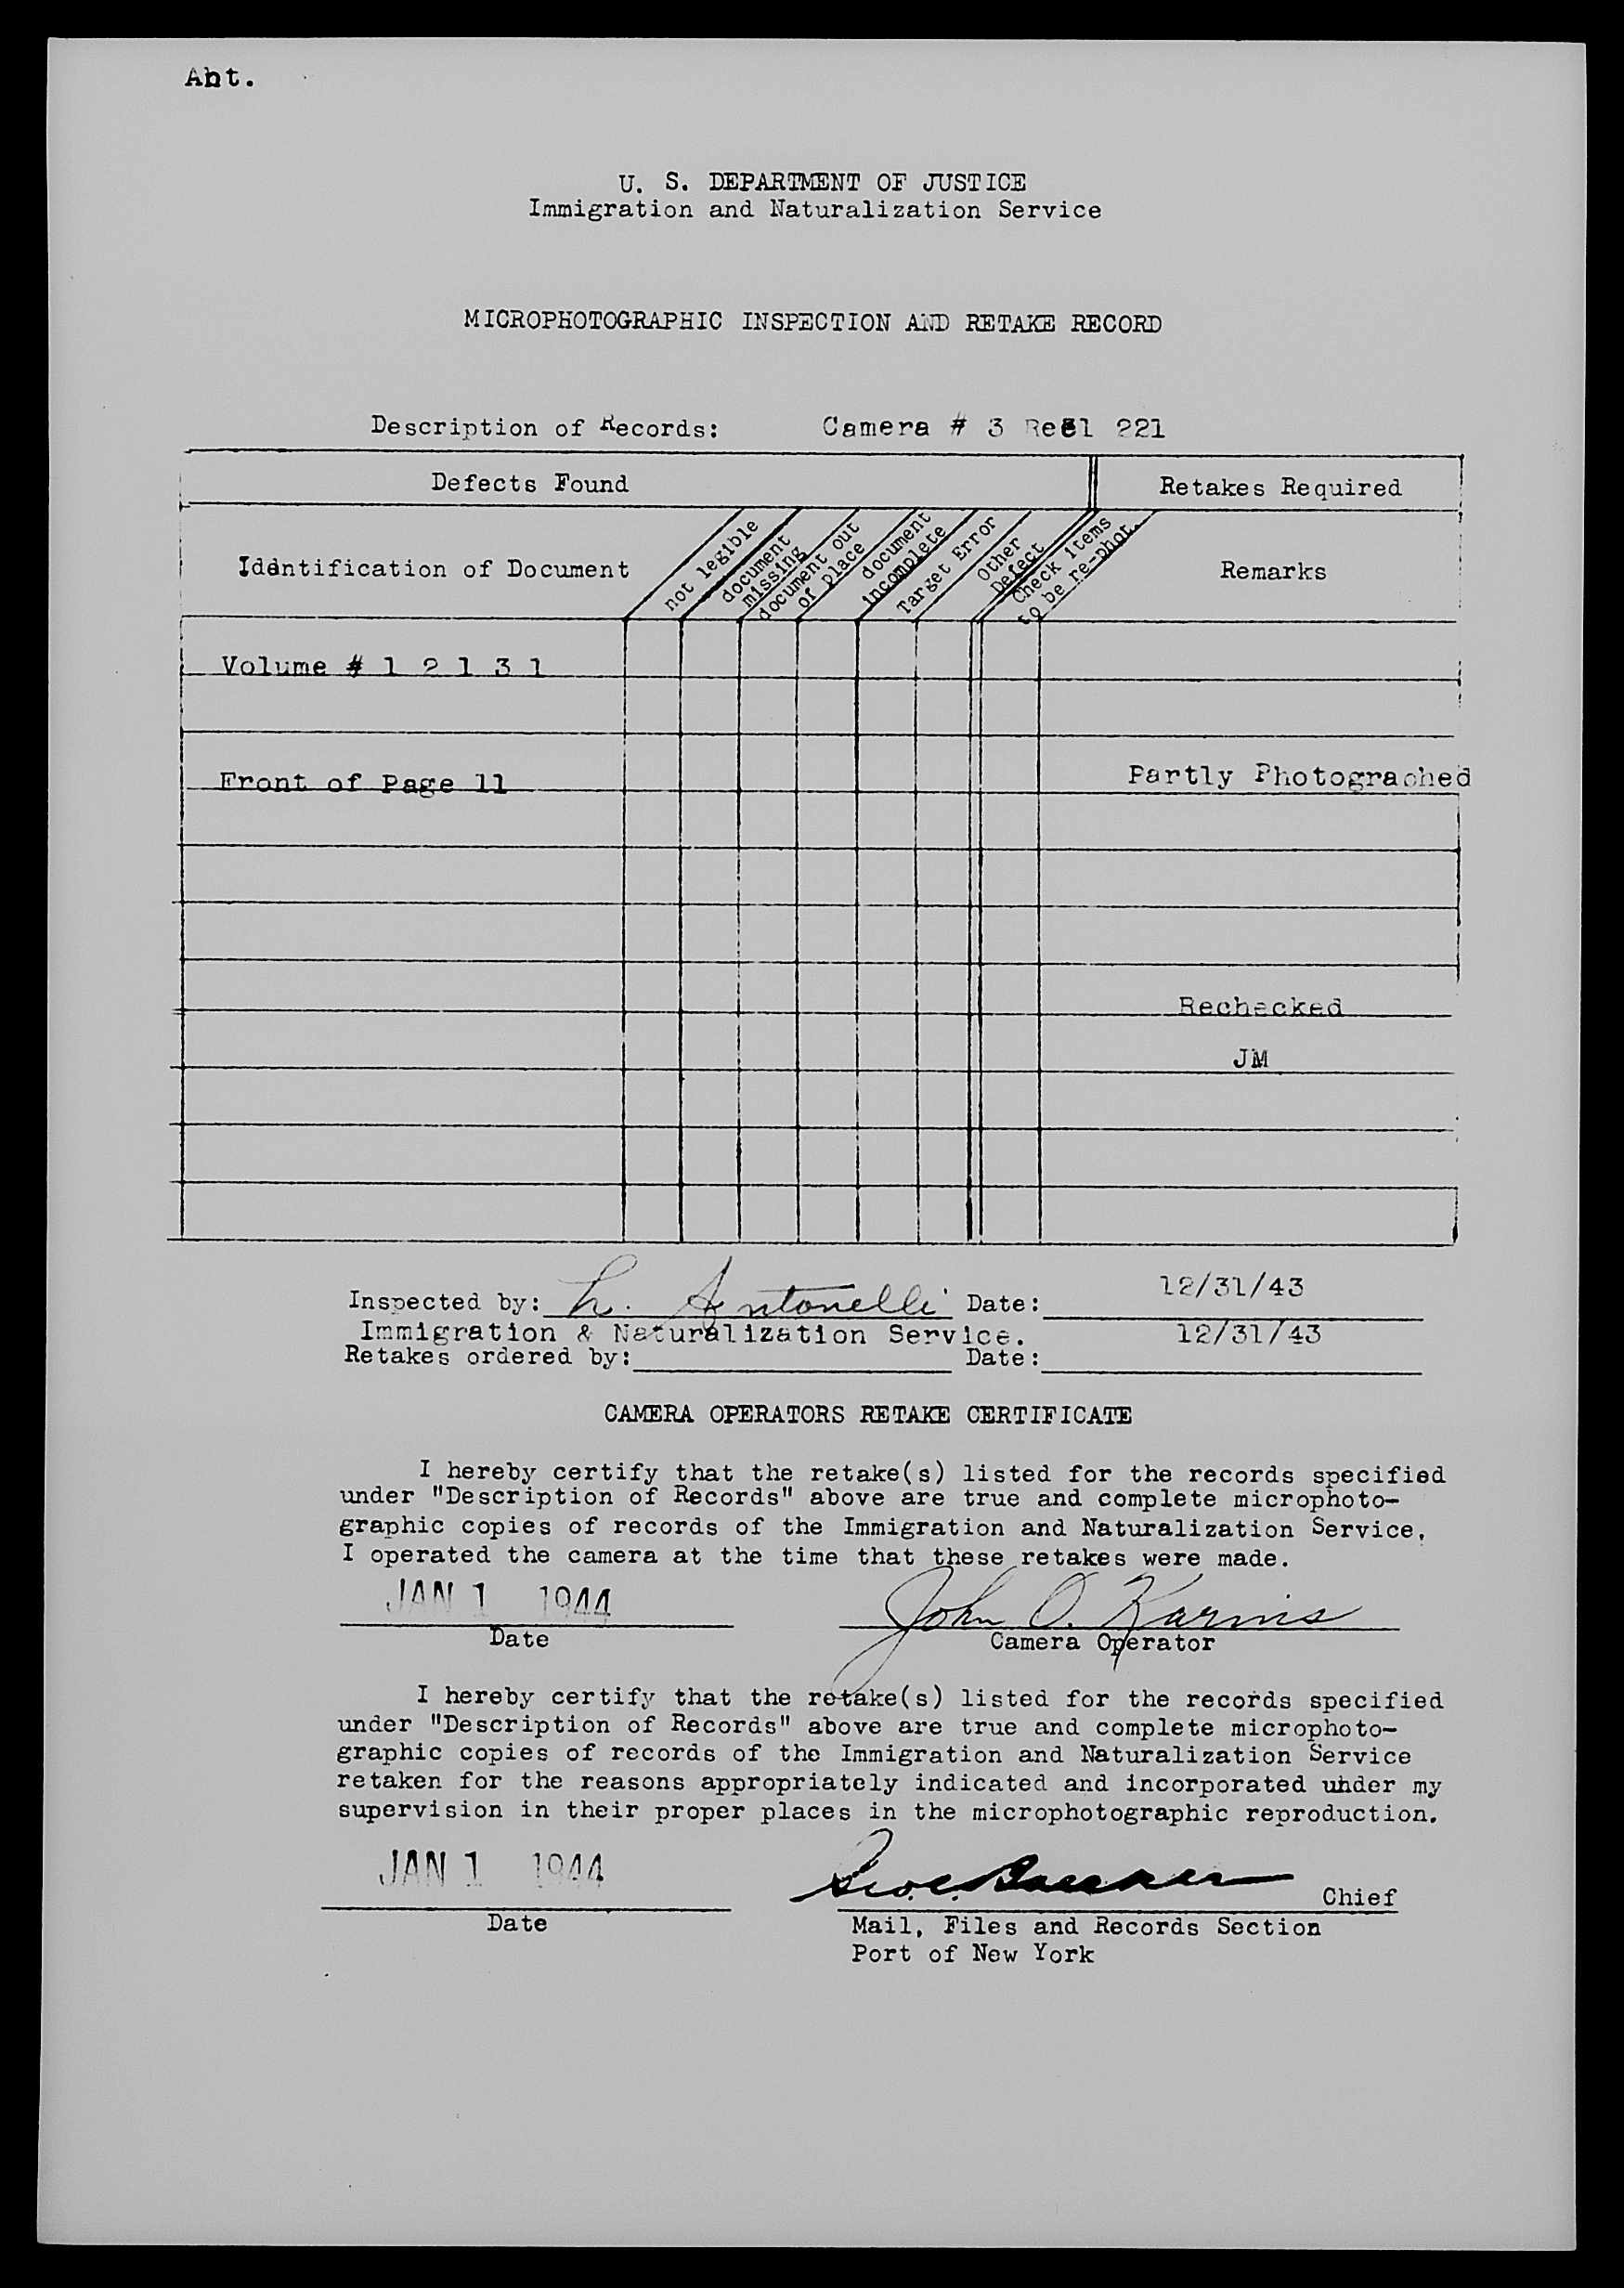 Ant.
U. S. DEPARTMENT OF JUSTICE
Immigration and Naturalization Service
MICROPHOTOGRAPHIC INSPECTION AND RETAKE RECORD
Description of Records: Camera # 3 Reel 221
Defects Found Retakes Required
Identification of Document
not legible
document
missing
document out
of place
document
incomplete
Target Error
Other
Defect
Check items
to be re-phot.
Remarks
Volume # 1 2 1 3 1
Front of Page 11 Partly Photograched
Rechecked
JM
Inspected by: L. Antonelli Date: 12/31/43
Immigration & Naturalization Service. 12/31/43
Retakes ordered by: Date:
CAMERA OPERATORS RETAKE CERTIFICATE
I hereby certify that the retake(s) listed for the records specified
under "Description of Records" above are true and complete microphoto-
graphic copies of records of the Immigration and Naturalization Service,
I operated the camera at the time that these retakes were made.
JAN 1 1944 John O. Karins
Date Camera Operator
I hereby certify that the retake(s) listed for the records specified
under "Description of Records" above are true and complete microphoto-
graphic copies of records of the Immigration and Naturalization Service
retaken for the reasons appropriately indicated and incorporated under my
supervision in their proper places in the microphotographic reproduction.
JAN 1 1944 Chief
Date Mail, Files and Records Section
Port of New York